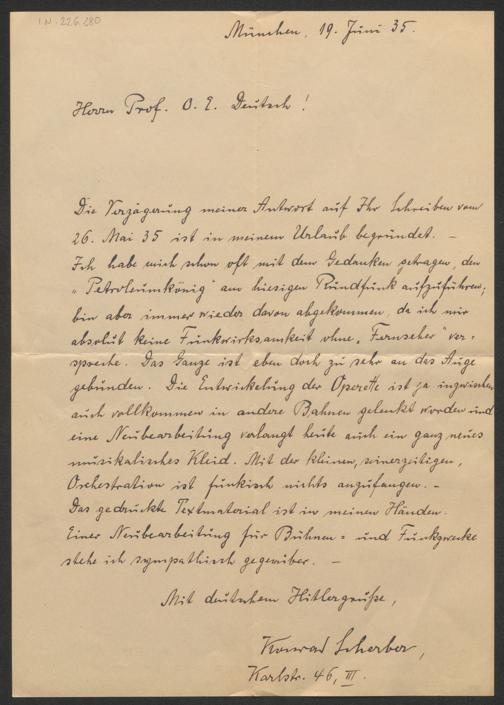 I.N. 226.280
München, 19. Juni 35.
Herrn Prof. O. E. Deutsch!
Die Verzögerung meiner Antwort auf Ihr Schreiben vom
26. Mai 35 ist in meinem Urlaub begründet. –
Ich habe mich schon oft mit dem Gedanken getragen, den
„Petroleumkönig" am hiesigen Rundfunk aufzuführen;
bin aber immer wieder davon abgekommen, da ich mir
absolut keine Funkwirksamkeit ohne „Fernseher" ver-
spreche. Das Ganze ist eben doch zu sehr an das Auge
gebunden. Die Entwickelung der Operette ist ja inzwischen
auch vollkommen in andere Bahnen gelenkt worden und
eine Neubearbeitung verlangt heute auch ein ganz neues
musikalisches Kleid. Mit der kleinen, seinerzeitigen,
Orchestration ist funkisch nichts anzufangen. –
Das gedruckte Textmaterial ist in meinen Händen.
Einer Neubearbeitung für Bühnen= und Funkzwecke
stehe ich sympathisch gegenüber. –
Mit deutschem Hitlergruße,
Konrad Scherber,
Karlstr. 46, III.